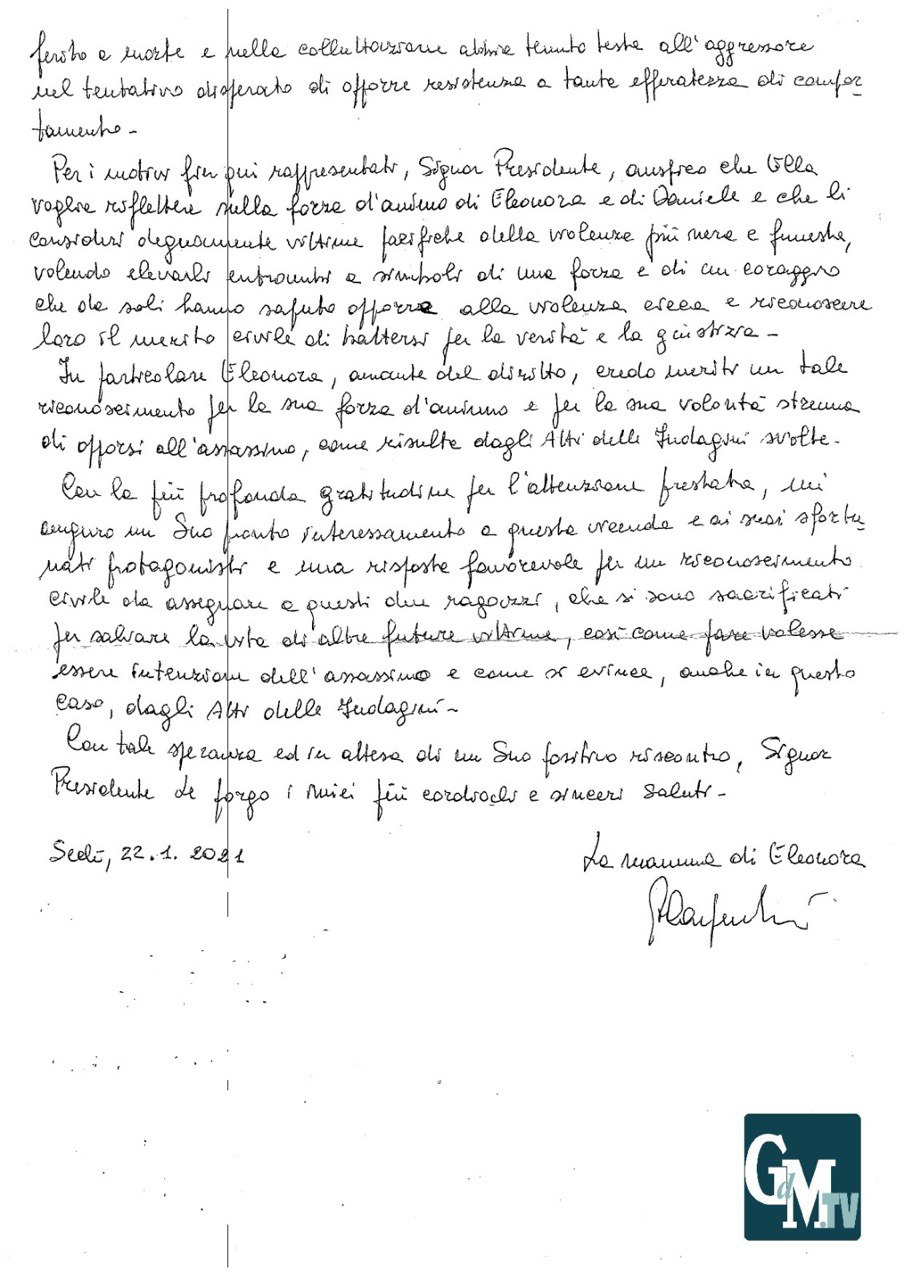 ferito a morte e nella colluttazione abbia tenuto testa all'aggressore
nel tentativo disperato di opporre resistenza a tanta efferatezza di compor_
tamento-
Per i motivi fin qui rappresentati, Signor Presidente, auspico che Ella
voglia riflettere sulla forza d'animo di Eleonora e di Daniele e che li
consideri degnamente vittime pacifiche della violenza più nera e funesta,
volendo elevarli entrambi a simboli di una forza e di un coraggio
che da soli hanno saputo opporre alla violenza cieca e riconoscere
loro il merito civile di battersi per la verità e la giustizia-
In particolare Eleonora, amante del diritto, credo meriti un tale
riconoscimento per la sua forza d'animo e per la sua volontà strenua
di opporsi all'assassino, come risulta dagli Atti delle Indagini svolte-
Con la più profonda gratitudine per l'attenzione prestata, mi
auguro un Suo pronto interessamento a questa vicenda e ai suoi sfortu_
nati protagonisti e una risposta favorevole per un riconoscimento
civile da assegnare a questi due ragazzi, che si sono sacrificati
per salvare la vita di altre future vittime, così come pare volesse
essere intenzione dell'assassino e come si evince, anche in questo
caso, dagli Atti delle Indagini-
Con tale speranza ed in attesa di un Suo positivo riscontro, Signor
Presidente Le porgo i miei più cordiali e sinceri saluti-
Seclì, 22.1.2021
La mamma di Eleonora
GdM.TV